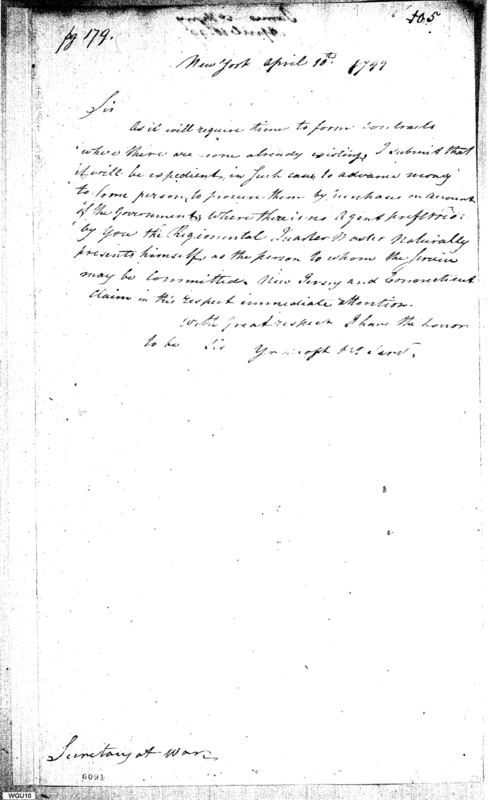 405
pg 179.
New York April 10th. 1799
Sir
As it will require time to form contracts
where there are none already existing, I submit that
it will be expedient, in such case, to advance money
to some person, to procure them by purchase on account
of the Government, where there is no Agent
by you the Regimental Quarter Master Naturally
presents himself, as the person to whom the service
may be Committed. New Jersey and Connecticut
Claim in this respect immediate attention.
With Great respect I have the honor
to be Sir Yr Most Obt. Servt.
Secretary at War
6091
WGU10